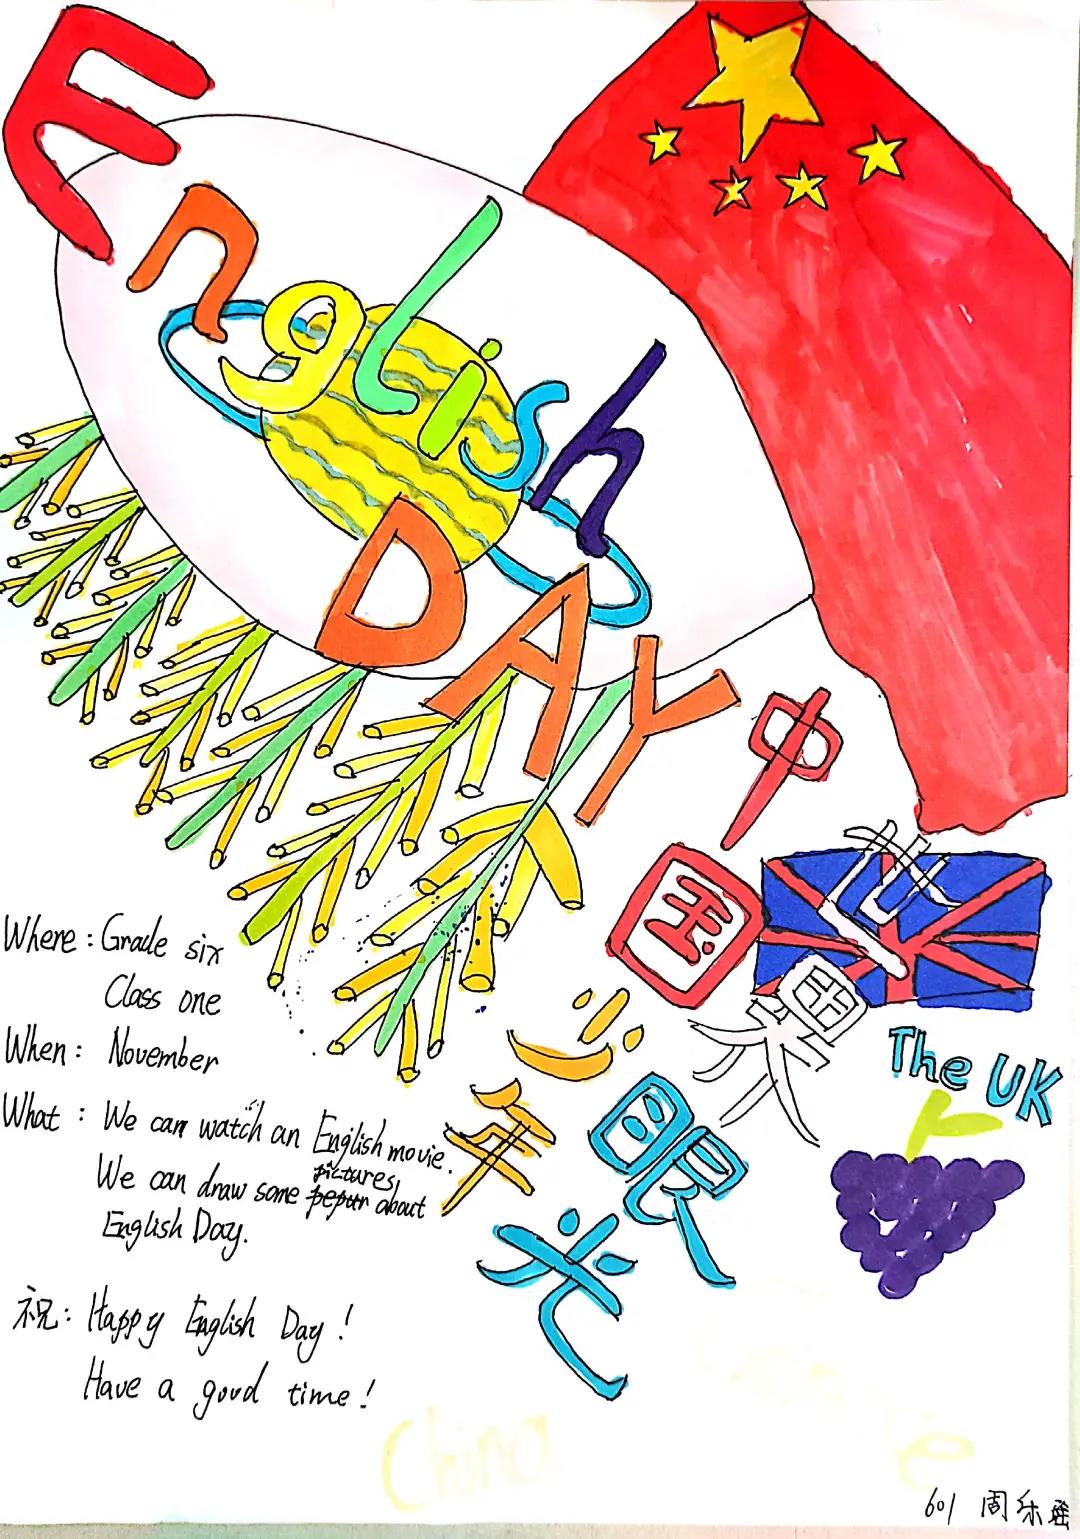 English
DAY
中国少年
世界眼光
The UK
Where : Grade six
Class one
When : November
What : We can watch an English movie.
We can draw some pictures, about
English Day.
祝: Happy English Day !
Have a good time !
China
601 周乐瑶